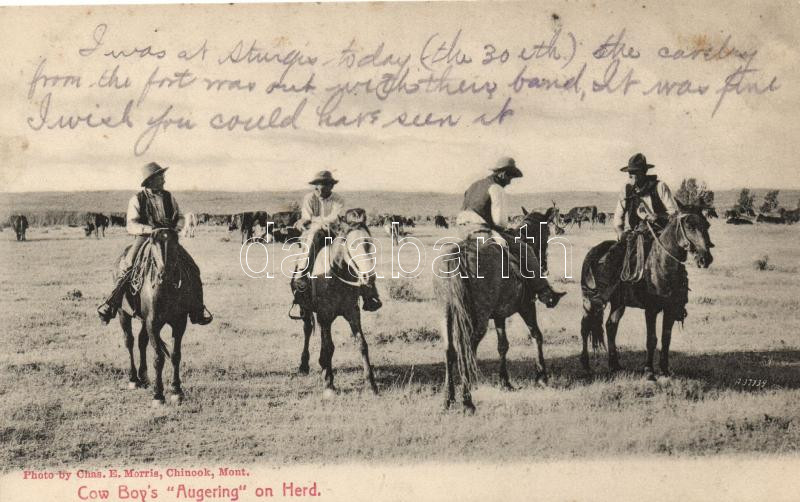 I was at Sturgis today (the 30 eth) the cavelry
from the fort was out with their band, It was fine
I wish you could have seen it
darabanth
A 37839
Photo by Chas. E. Morris, Chinook, Mont.
Cow Boy's "Augering" on Herd.